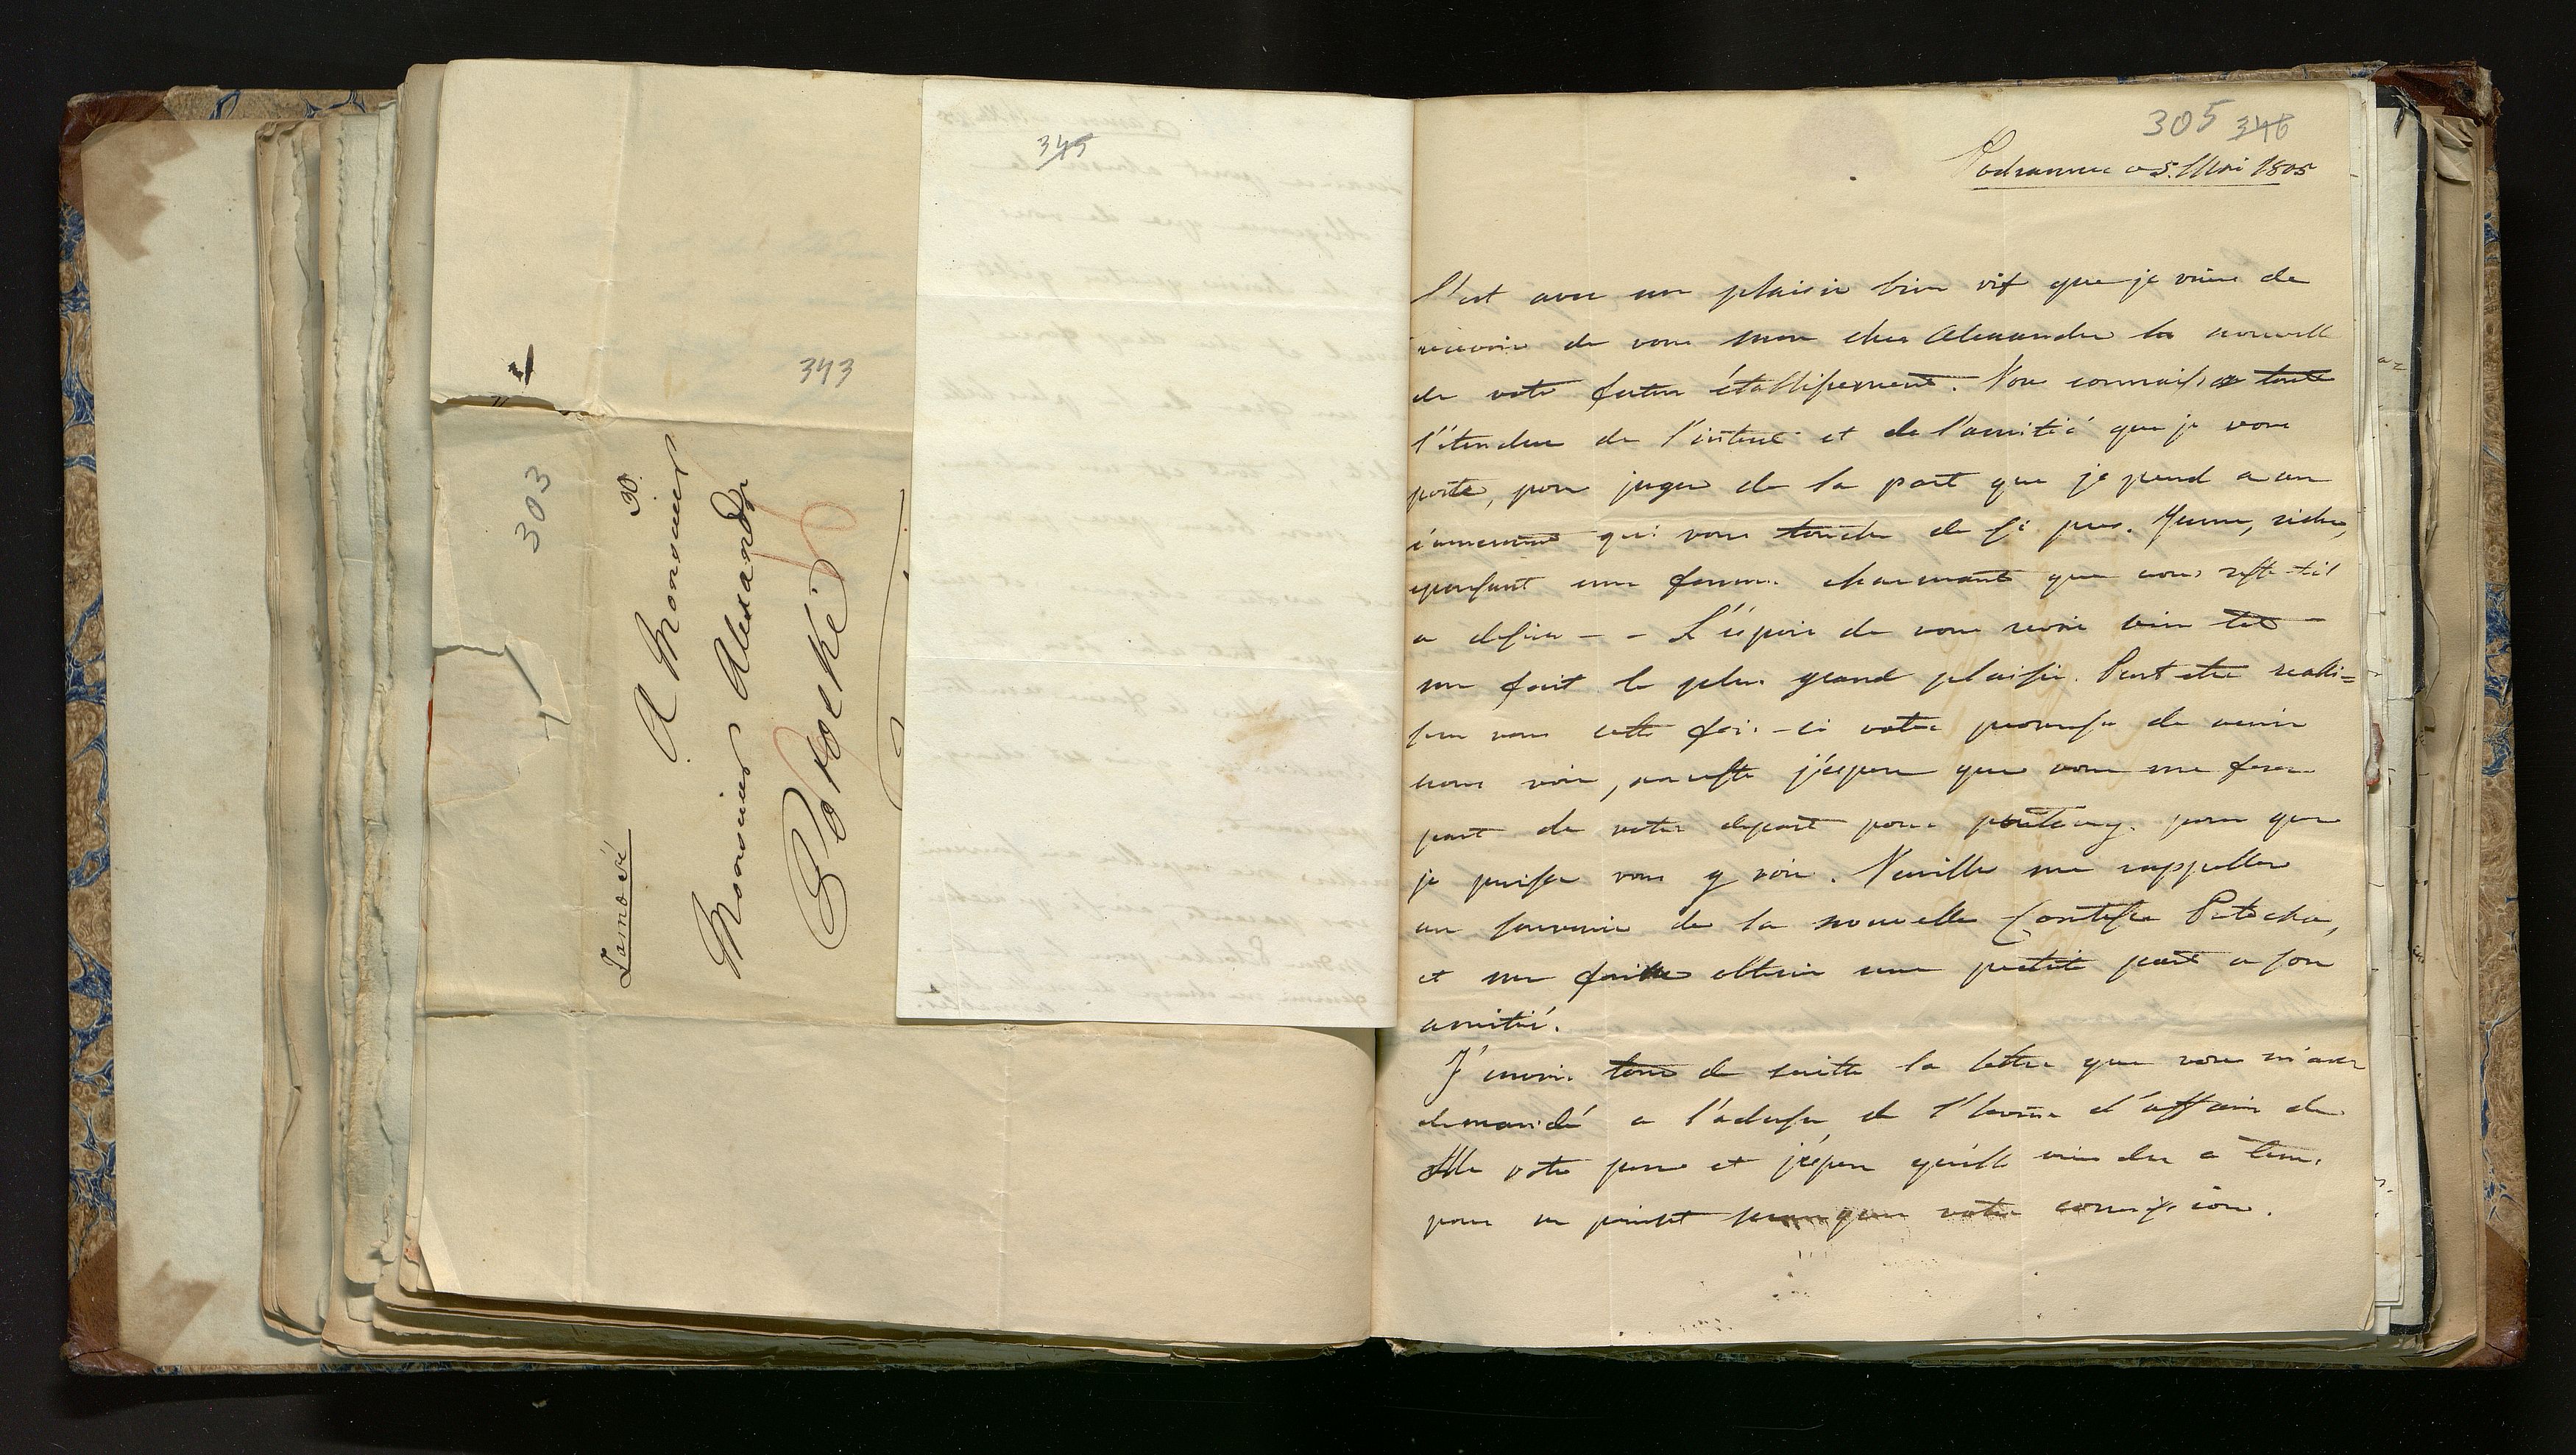 343
303
Zamość 30
A Monsieur
Monsieur Alexandre
Potocki
345
305 346
5. Mai 1805
C'est avec un plaisir bien vif que je viens de
recevoir de vous mon cher Alexandre la nouvelle
de votre futur établissement. Vous connaissez toute
l'étendue de l'interet et de l'amitié que je vous
porte, pour juger de la part que je prend a un
évenement qui vous touche de si pres. Jeune, riche,
epousant une femme charmante que vous reste-t-il
a desirer - - L'éspoir de vous revoir bien tot -
me fait le plus grand plaisir. Peut etre reali=
serez vous cette fois-ci votre promesse de venir
nous voir, au reste j'éspere que vous me ferez
part de votre depart pour pour que
je puisse vous y voir. Veuillez me rappeller
au souvenir de la nouvelle Contesse Potocka,
et me faites obtenir une petite part a son
amitié.
J'envois tout de suitte la lettre que vous m'avez
demandé a l'adresse de l'homme d'affaire de
Mde votre mere et j'éspere qu'elle viendra a tems
pour ne point manquer votre comission.